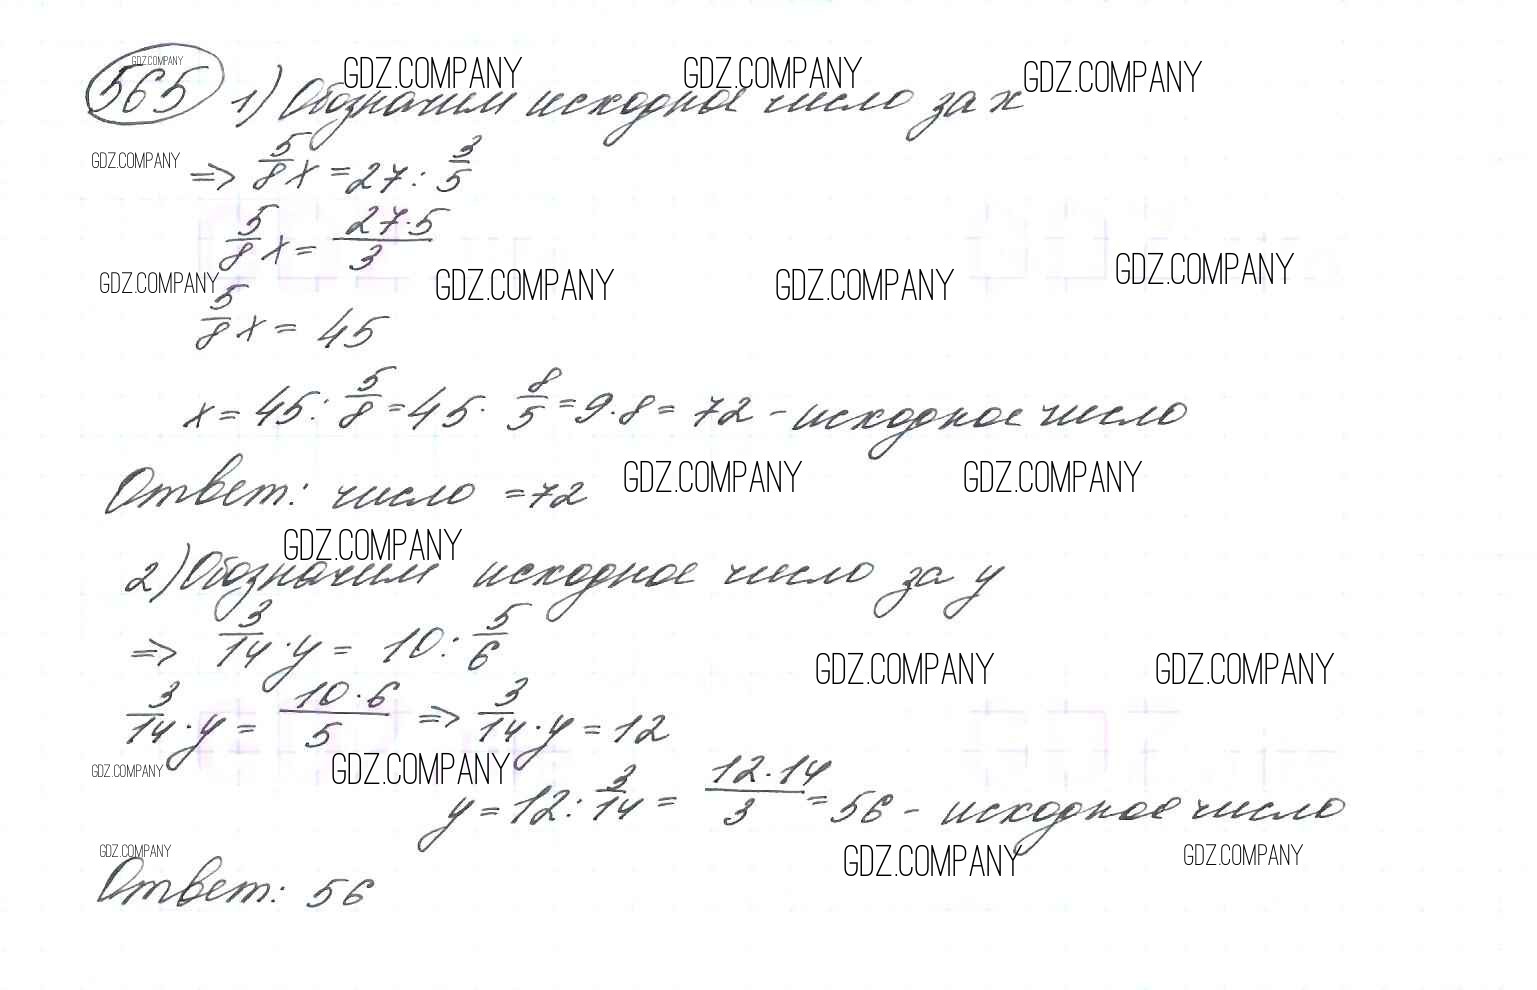 GDZ.COMPANY
GDZ.COMPANY GDZ.COMPANY GDZ.COMPANY
565 1) Обозначим исходное число за x
GDZ.COMPANY
=> 5/8 x = 27 : 3/5
5/8 x = 27·5/3
GDZ.COMPANY GDZ.COMPANY GDZ.COMPANY GDZ.COMPANY
5/8 x = 45
x = 45 : 5/8 = 45 · 8/5 = 9·8 = 72 - исходное число
GDZ.COMPANY GDZ.COMPANY
Ответ: число = 72
GDZ.COMPANY
2) Обозначим исходное число за y
=> 3/14 · y = 10 : 5/6
GDZ.COMPANY GDZ.COMPANY
3/14 · y = 10·6/5 => 3/14 · y = 12
GDZ.COMPANY GDZ.COMPANY
y = 12 : 3/14 = 12·14/3 = 56 - исходное число
GDZ.COMPANY GDZ.COMPANY GDZ.COMPANY
Ответ: 56